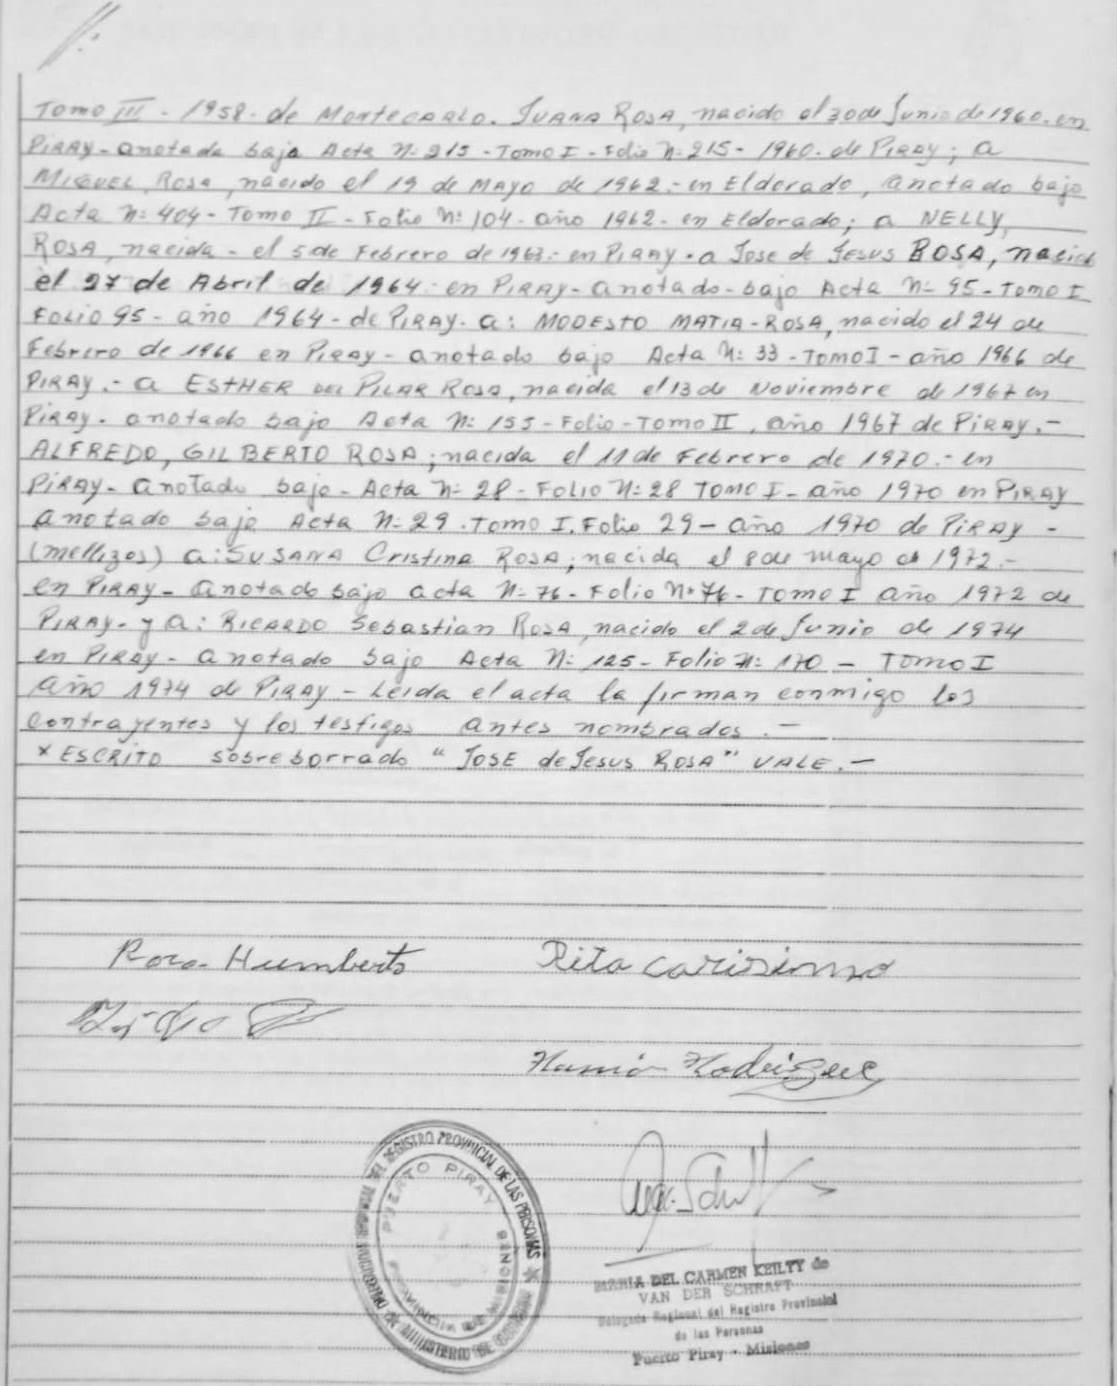 Tomo III - 1958 - de Montecarlo. JUANA ROSA, nacido el 30 de Junio de 1960. en
PIRAY - anotada bajo Acta Nº 215 - Tomo I - Folio Nº 215 - 1960. de PIRAY; a
MIGUEL ROSA, nacido el 19 de MAYO de 1962.- en Eldorado, anotado bajo
Acta Nº 404 - Tomo II - Folio Nº 104 - año 1962 - en Eldorado; a NELLY,
ROSA, nacida - el 5 de Febrero de 1963.- en PIRAY - a Jose de JESUS ROSA, nacido
el 27 de Abril de 1964 - en PIRAY - anotado - bajo Acta Nº 95 - Tomo I
FOLIO 95 - año 1964 - de PIRAY. a: MODESTO MATIA - ROSA, nacido el 24 de
Febrero de 1966 en PIRAY - anotado bajo Acta Nº 33 - Tomo I - año 1966 de
PIRAY.- a ESTHER DEL PILAR ROSA, nacida el 13 de Noviembre de 1967 en
PIRAY - anotado bajo Acta Nº 155 - Folio - Tomo II, año 1967 de PIRAY.-
ALFREDO, GILBERTO ROSA; nacida el 11 de Febrero de 1970.- en
PIRAY - anotado bajo - Acta Nº 28 - FOLIO Nº 28 TOMO I - año 1970 en PIRAY
anotado bajo Acta Nº 29. Tomo I. Folio 29 - año 1970 de PIRAY -
(mellizos) a: SUSANA Cristina ROSA; nacida el 8 de mayo de 1972.-
en PIRAY - anotado bajo acta Nº 76 - Folio Nº 76 - TOMO I año 1972 de
PIRAY - y a: RICARDO Sebastian ROSA, nacido el 2 de Junio de 1974
en PIRAY - anotado bajo Acta Nº 125 - Folio Nº 170 - TOMO I
año 1974 de PIRAY - Leida el acta la firman conmigo los
contrayentes y los testigos antes nombrados. -
* ESCRITO sobreborrado "JOSE de Jesus ROSA" VALE. -
Humberto
Rita
Rodriguez
DELEGACION DEL REGISTRO PROVINCIAL DE LAS PERSONAS
MINISTERIO DE GOBIERNO
PUERTO PIRAY
MISIONES
MARIA DEL CARMEN KEILTY de
VAN DER SCHRAFT
Delegada Regional del Registro Provincial
de las Personas
Puerto Piray - Misiones